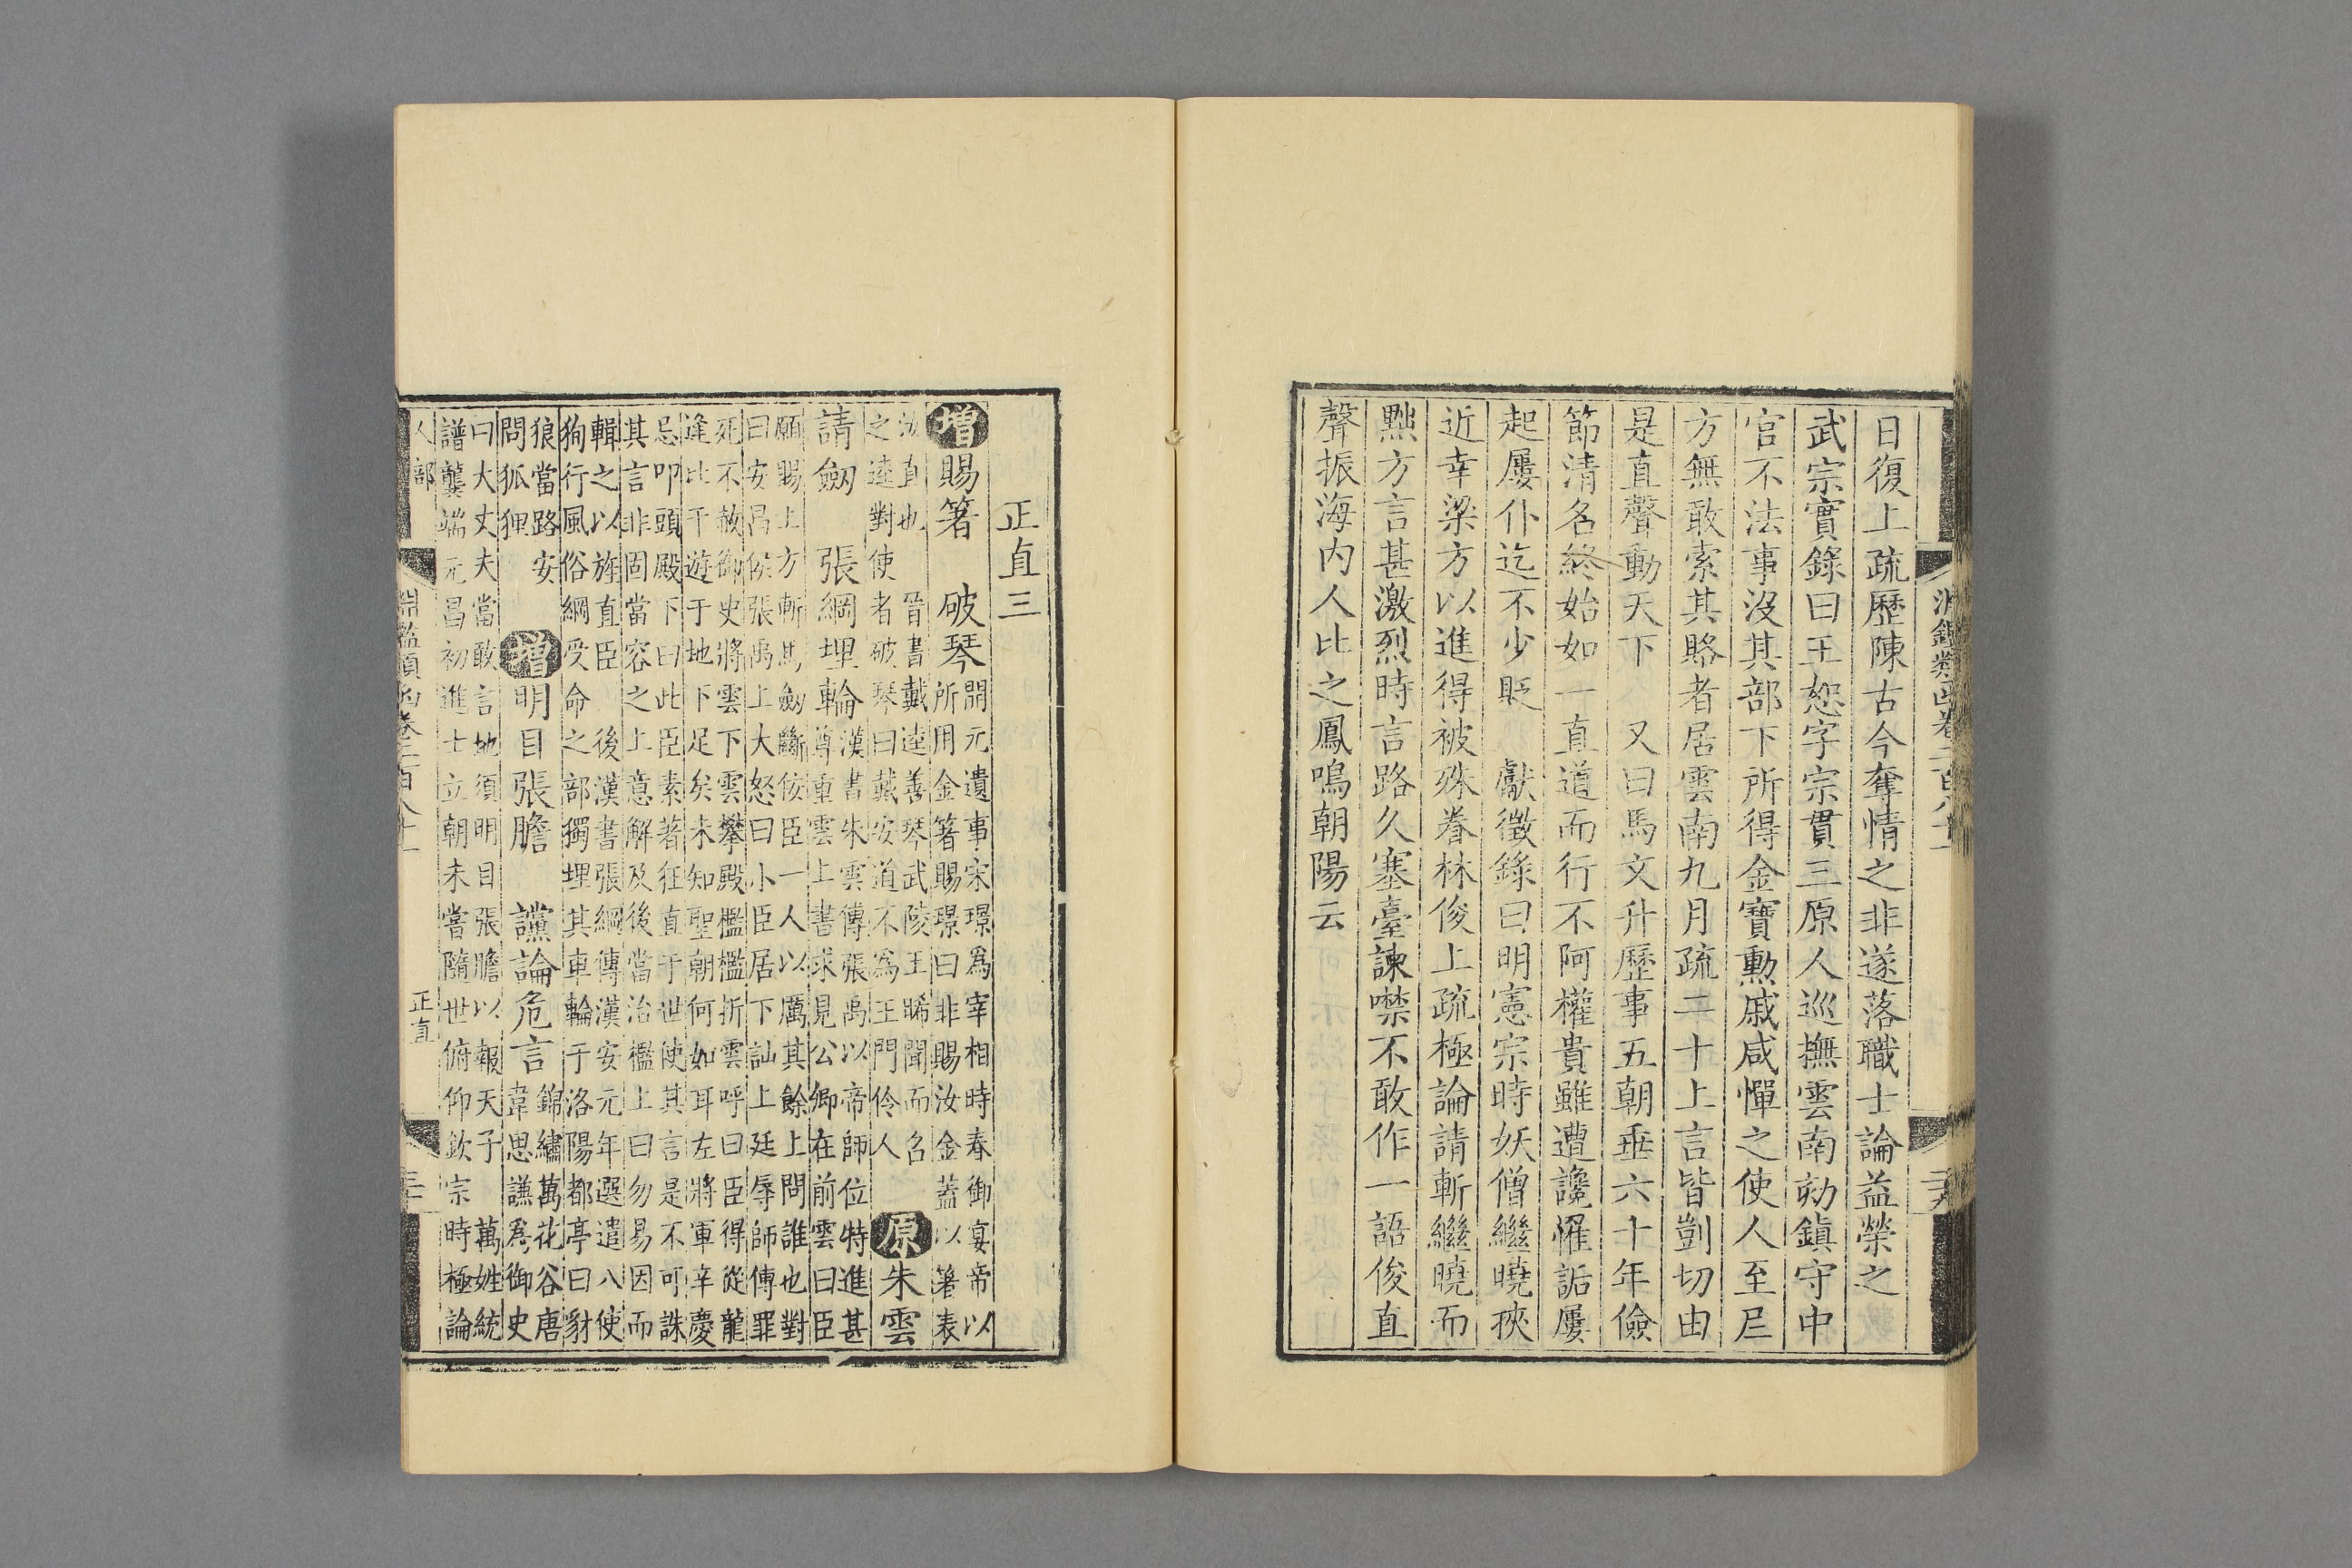 淵鑑類函卷二百八十一
二十九
日復上疏歷陳古今奪情之非遂落職士論益榮之
武宗實錄曰王恕字宗貫三原人巡撫雲南劾鎮守中
官不法事沒其部下所得金寶勲戚咸憚之使人至尼
方無敢索其賂者居雲南九月疏二十上言皆剴切由
是直聲動天下 又曰馬文升歷事五朝垂六十年儉
節清名終始如一直道而行不阿權貴雖遭讒罹詬屢
起屢仆迄不少貶 獻徵錄曰明憲宗時妖僧繼曉挾
近幸梁方以進得被殊眷林俊上疏極論請斬繼曉而
黜方言甚激烈時言路久塞臺諫噤不敢作一語俊直
聲振海内人比之鳳鳴朝陽云
正直三
增賜箸 破琴
開元遺事宋璟爲宰相時春御宴帝以
所用金箸賜璟曰非賜汝金蓋以箸表
汝直也 晉書戴逵善琴武陵王晞聞而召
之逵對使者破琴曰戴安道不爲王門伶人
原朱雲
請劔 張綱埋輪
漢書朱雲傳張禹以帝師位特進甚
尊重雲上書求見公卿在前雲曰臣
願賜上方斬馬劔斷佞臣一人以厲其餘上問誰也對
曰安昌侯張禹上大怒曰小臣居下訕上廷辱師傅罪
死不赦御史將雲下雲攀殿檻檻折雲呼曰臣得從龍
逄比干遊于地下足矣未知聖朝何如耳左將軍辛慶
忌叩頭殿下曰此臣素著狂直于世使其言是不可誅
其言非固當容之上意解及後當治檻上曰勿易因而
輯之以旌直臣 後漢書張綱傳漢安元年選遣八使
狥行風俗綱受命之部獨埋其車輪于洛陽都亭曰豺
狼當路安
問狐狸
增明目張膽 讜論危言
錦繡萬花谷唐
韋思謙爲御史
曰大丈夫當敢言地須明目張膽以報天子 萬姓統
譜龔端元昌初進士立朝未嘗隨世俯仰欽宗時極論
人部
淵鑑類函卷二百八十一
正直
三十